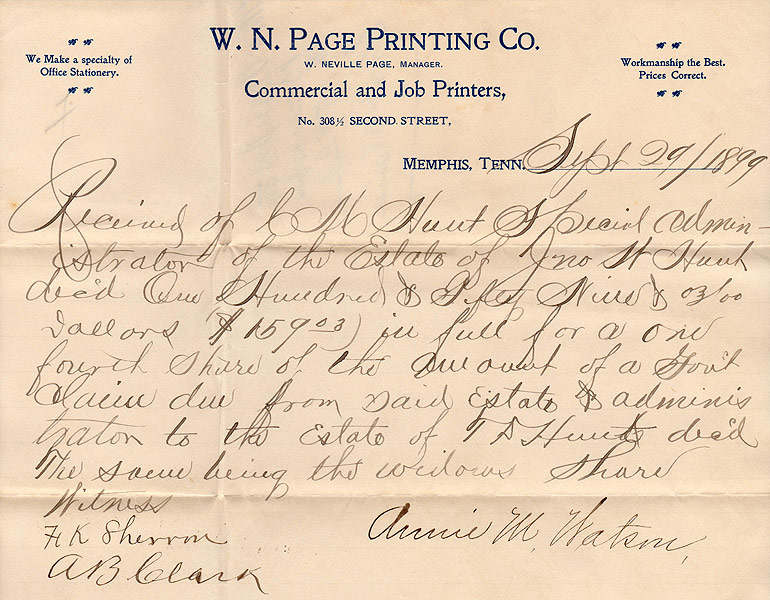 W. N. PAGE PRINTING CO.
W. NEVILLE PAGE, MANAGER.
We Make a specialty of
Office Stationery.
Commercial and Job Printers,
Workmanship the Best.
Prices Correct.
No. 308½ SECOND STREET,
MEMPHIS, TENN. Sept 29/1899
Received of C M Hunt Special admin-
istrator of the Estate of Jno W Hunt
dec'd One Hundred & Fifty Nine & 03/00
Dollars ($159 03) in full for a one
fourth Share of the amount of a Gov't
Claim due from said Estate & adminis
trator to the Estate of T D Hunt dec'd
The same being the widows Share
Witness
H K Sherron
Annie M. Watson,
A B Clark